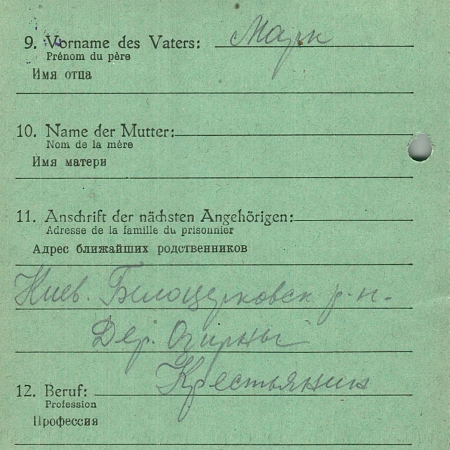 9. Vorname des Vaters: Марк
Prénom du père
Имя отца
10. Name der Mutter:
Nom de la mère
Имя матери
11. Anschrift der nächsten Angehörigen:
Adresse de la famille du prisonnier
Адрес ближайших родственников
Киев. Белоцерковск р-н.
Дер. Озирны
12. Beruf: Крестьянин
Profession
Профессия